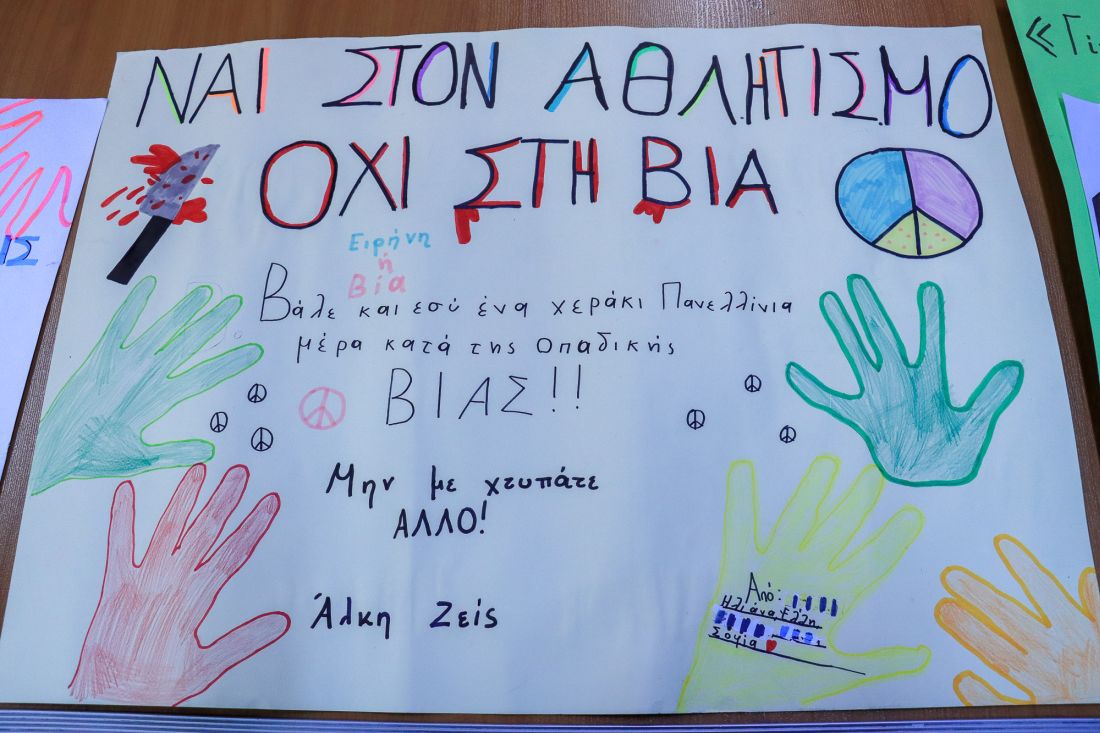 ΝΑΙ ΣΤΟΝ ΑΘΛΗΤΙΣΜΟ
ΟΧΙ ΣΤΗ ΒΙΑ
Ειρήνη
ή
Βία
Βάλε και εσύ ένα χεράκι Πανελλίνια
μέρα κατά της οπαδικής
ΒΙΑΣ!!
Μην με χτυπάτε
ΑΛΛΟ!
Άλκη Ζείς
Από:
Ηλιάνα, Έλλη,
Σοφία
ΙΣ
«Γι